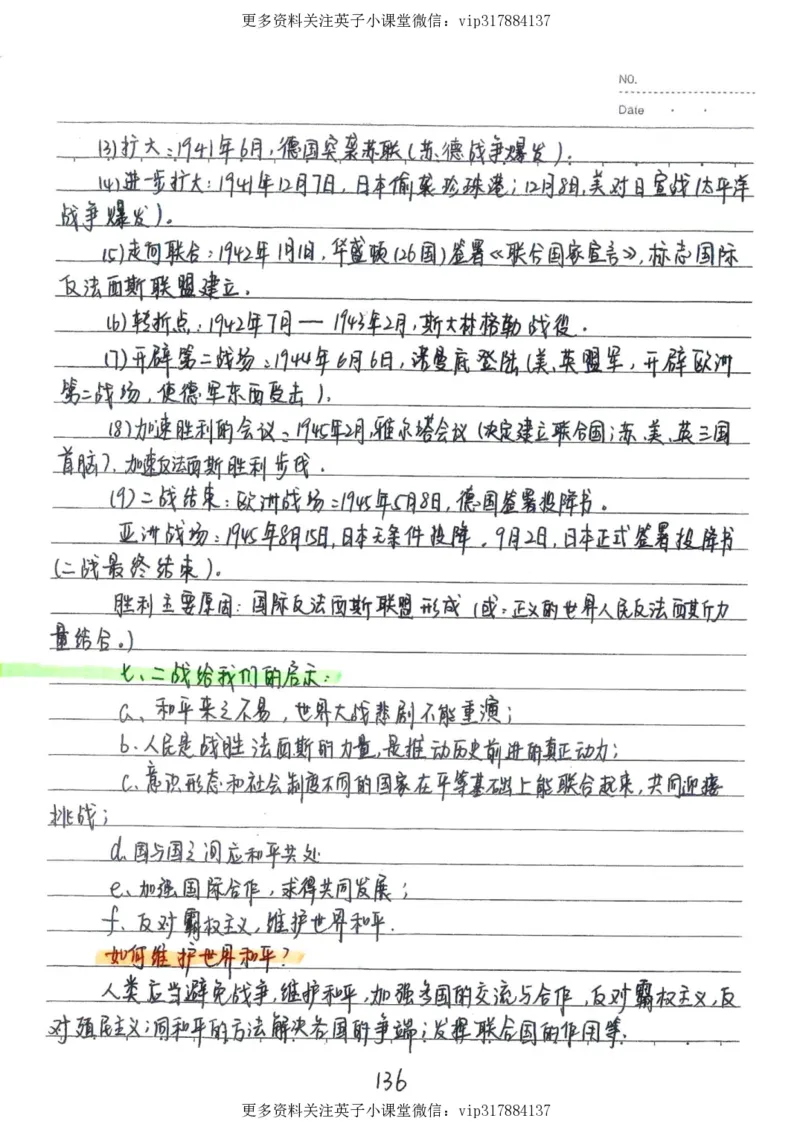 更多资料关注英子小课堂微信：vip317884137
NO.
Date
(3)扩大：1941年6月，德国突袭苏联(苏、德战争爆发)；
(4)进一步扩大：1941年12月7日，日本偷袭珍珠港；12月8日，美对日宣战(太平洋
战争爆发)。
(5)走向联合：1942年1月1日，华盛顿(26国)签署《联合国家宣言》，标志国际
反法西斯联盟建立。
(6)转折点：1942年7月—1943年2月，斯大林格勒战役。
(7)开辟第二战场：1944年6月6日，诺曼底登陆(美、英盟军，开辟欧洲
第二战场，使德军东西受击)。
(8)加速胜利的会议：1945年2月，雅尔塔会议(决定建立联合国；苏、美、英三国
首脑)，加速反法西斯胜利步伐。
(9)二战结束：欧洲战场：1945年5月8日，德国签署投降书。
亚洲战场：1945年8月15日，日本无条件投降，9月2日，日本正式签署投降书
(二战最终结束)。
胜利主要原因：国际反法西斯联盟形成(或：正义的世界人民反法西斯力
量结合。)
七、二战给我们的启示：
a、和平来之不易，世界大战悲剧不能重演；
b、人民是战胜法西斯的力量，是推动历史前进的真正动力；
c、意识形态和社会制度不同的国家在平等基础上能联合起来，共同迎接
挑战；
d、国与国之间应和平共处
e、加强国际合作，求得共同发展；
f、反对霸权主义，维护世界和平。
如何维护世界和平？
人类应当避免战争，维护和平，加强各国的交流与合作，反对霸权主义，反
对殖民主义；同和平的方法解决各国的争端；发挥联合国的作用等。
136
更多资料关注英子小课堂微信：vip317884137